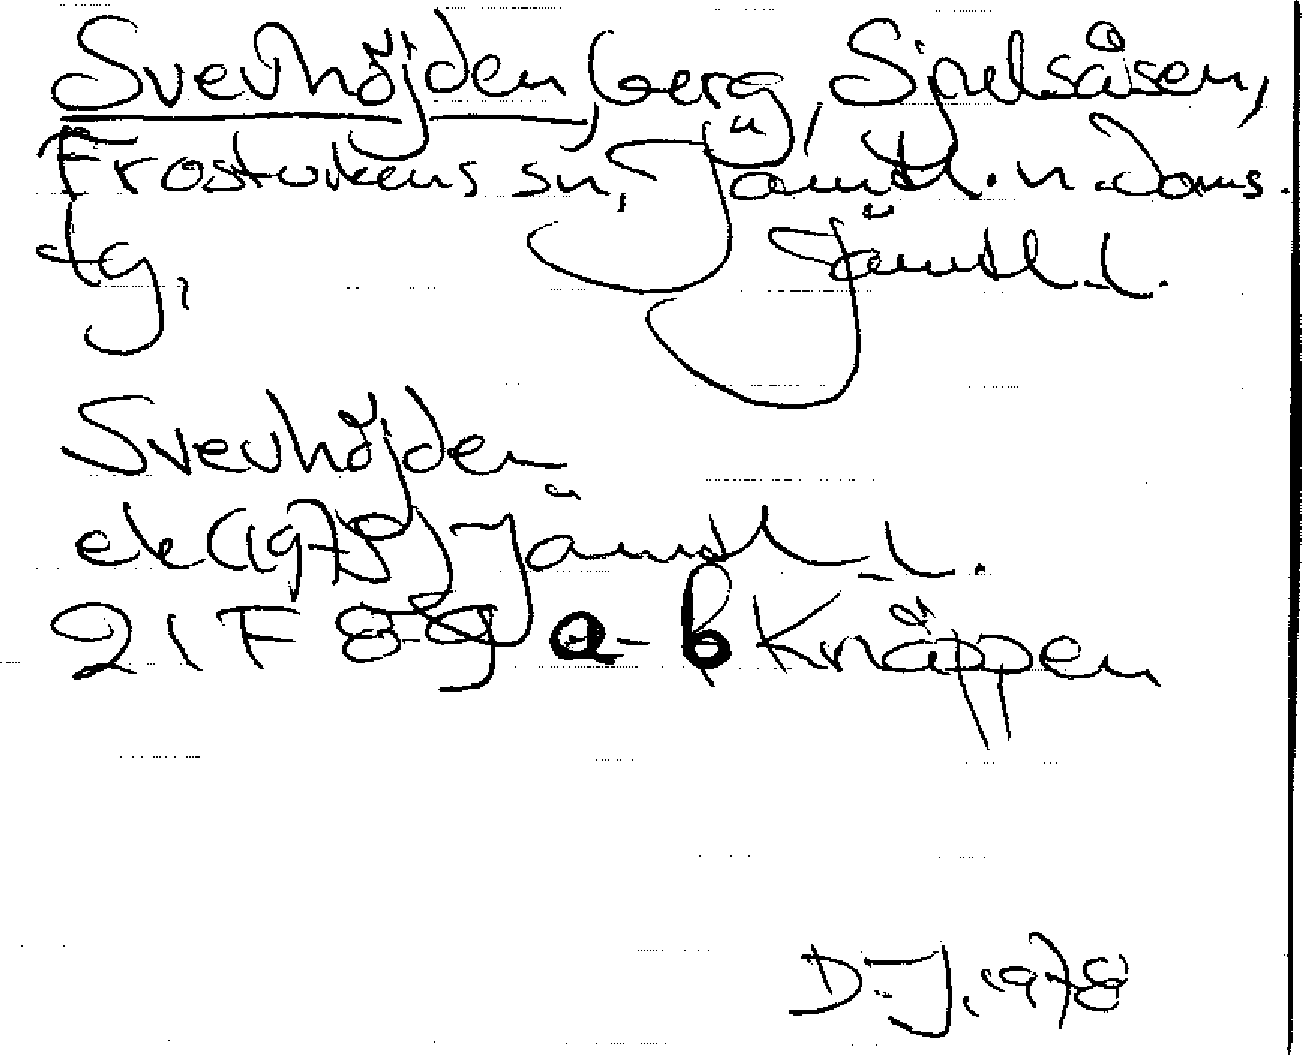 Svevhöjden, berg, Spelsåsen,
Frostvikens sn, Jämtl. n. doms.
tg, Jämtl. l.
Svevhöjden
ek (1975) Jämtl. l.
21 F 8-9 a-b Knäppen
D-J. 1978